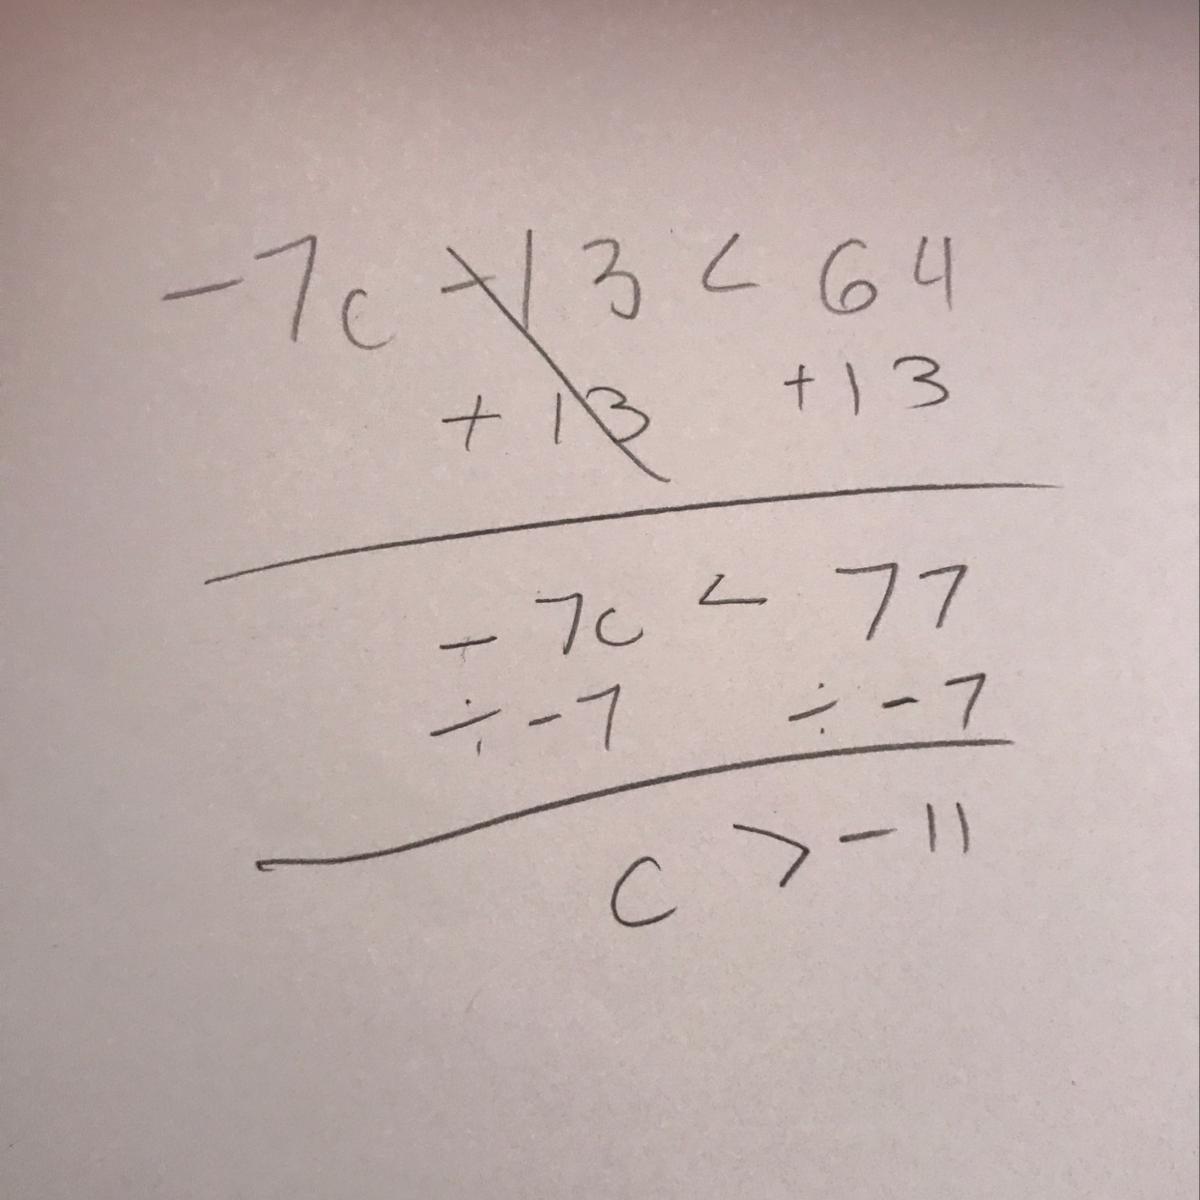 -7c -13 < 64
+ 13 +13
- 7c < 77
÷ -7 ÷ -7
c > -11